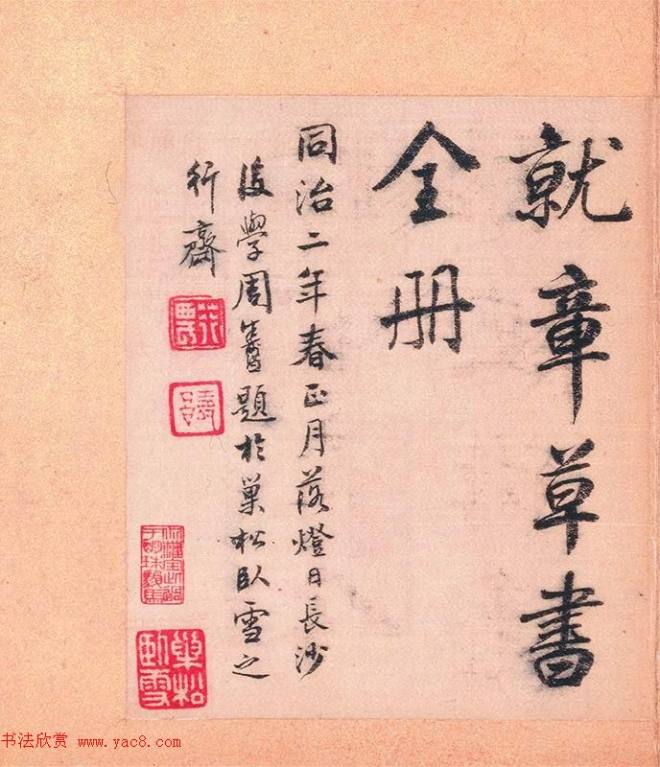 就章草書
全册
同治二年春正月落燈日長沙
後學周壽昌題於巢松臥雪之
行齋
荇農
巢松臥雪
书法欣赏 www.yac8.com